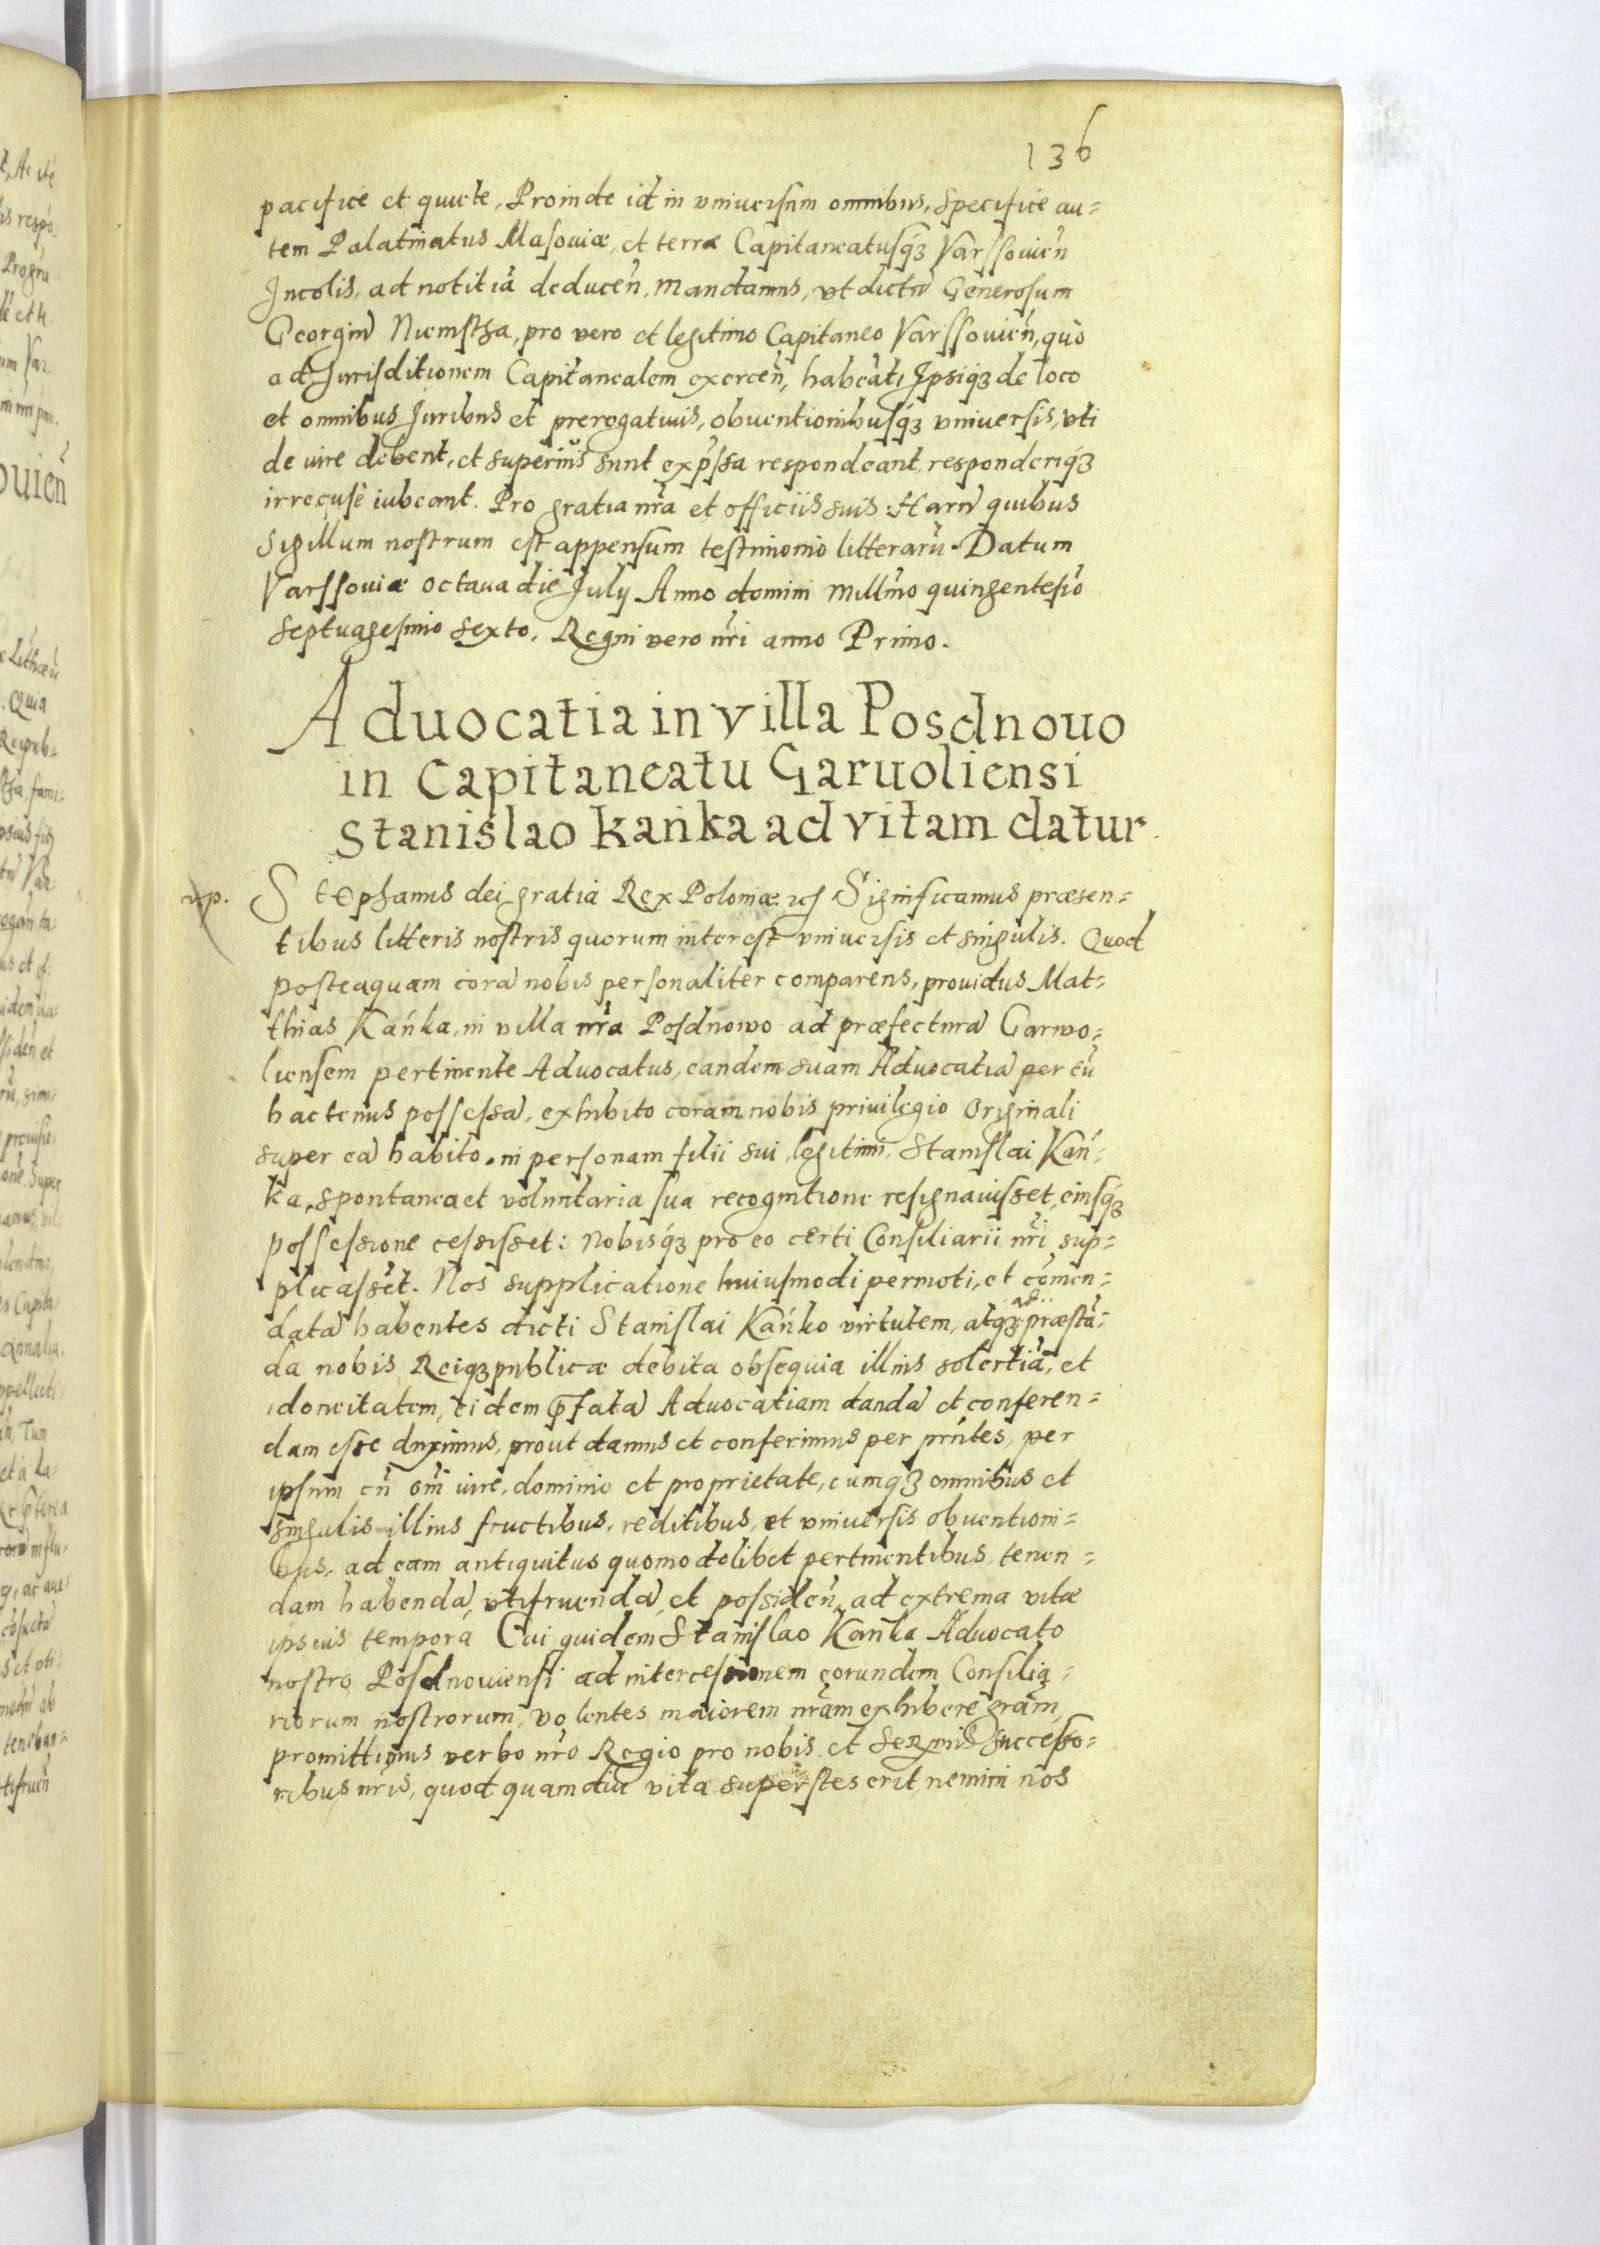 136
pacifice et quiete, Proinde id in vniuersum omnibus, specifice au=
tem Palatinatus Masouiæ, et terræ Capitaneatusq́ꝫ Varssouien̄
Incolis, ad notitiā deducen̄, mandamus, vt dictū Generosum
Georgiū Niemstha, pro vero et legitimo Capitaneo Varssouien̄, quo
ad Jurisditionem Capitanealem exercen̄, habeāt, Ipsiqꝫ de loco
et omnibus Juribus et prerogatiuis, obuentionibusq́ꝫ vniuersis, vti
de iure debent, et superius sunt exp̄ssa respondeant, responderiq́ꝫ
irrecusè iubeant. Pro gratia nr̄a et officiis suis: Harū quibus
Sigillum nostrum est appensum testimonio litterarū. Datum
Varssouiæ octaua die July Anno domini Millm̄o quingentesīo
Septuagesimo sexto. Regni vero nr̄i anno Primo.
Aduocatia in villa Posdnouo
in Capitaneatu Garuoliensi
Stanislao Kańka ad vitam datur
Stephanus dei gratia Rex Poloniæ. Significamus præsen=
tibus litteris nostris quorum interest vniuersis et singulis. Quod
posteaquam corā nobis personaliter comparens, prouidus Mat=
thias Kańka, in villa nr̄a Posdnowo ad præfecturā Garwo=
liensem pertinente Aduocatus, eandem suam Aduocatiā per eū
hactenus possessā, exhibito coram nobis priuilegio Originali
super eā habito, in personam filii sui legitimi, Stanislai Kań=
ka, spontanea et voluntaria sua recognitione resignauisset, eiusq́ꝫ
possessione cessisset: Nobisq́ꝫ pro eo certi Consiliarii nr̄i sup=
plicasset. Nos supplicatione huiusmodi permoti, et cōmen=
datā habentes dicti Stanislai Kańko virtutem, atqꝫ ad præstā=
da nobis Reiqꝫ publicæ debita obsequia illius solertiā, et
idoneitatem, eidem p̄fatā Aduocatiam dandā et conferen=
dam esse duximus, prout damus et conferimus per prn̄tes, per
ipsum cū om̄i iure, dominio et proprietate, cumqꝫ omnibus et
singulis illius fructibus, reditibus, et vniuersis obuentioni=
bus, ad eam antiquitus quomodolibet pertinentibus, tenen=
dam habendā, vtifruendā, et possiden̄, ad extrema vitæ
ipsuis tempora Cui quidem Stanislao Kańka Aduocato
nostro Posdnouiensi ad intercessionem eorundem Consilia=
riorum nostrorum, volentes maiorem nr̄am exhibere grām,
promittimus verbo nr̄o Regio pro nobis et Serm̄is Successo=
ribus nr̄is, quod quamdiu vita superstes erit, nemini nos